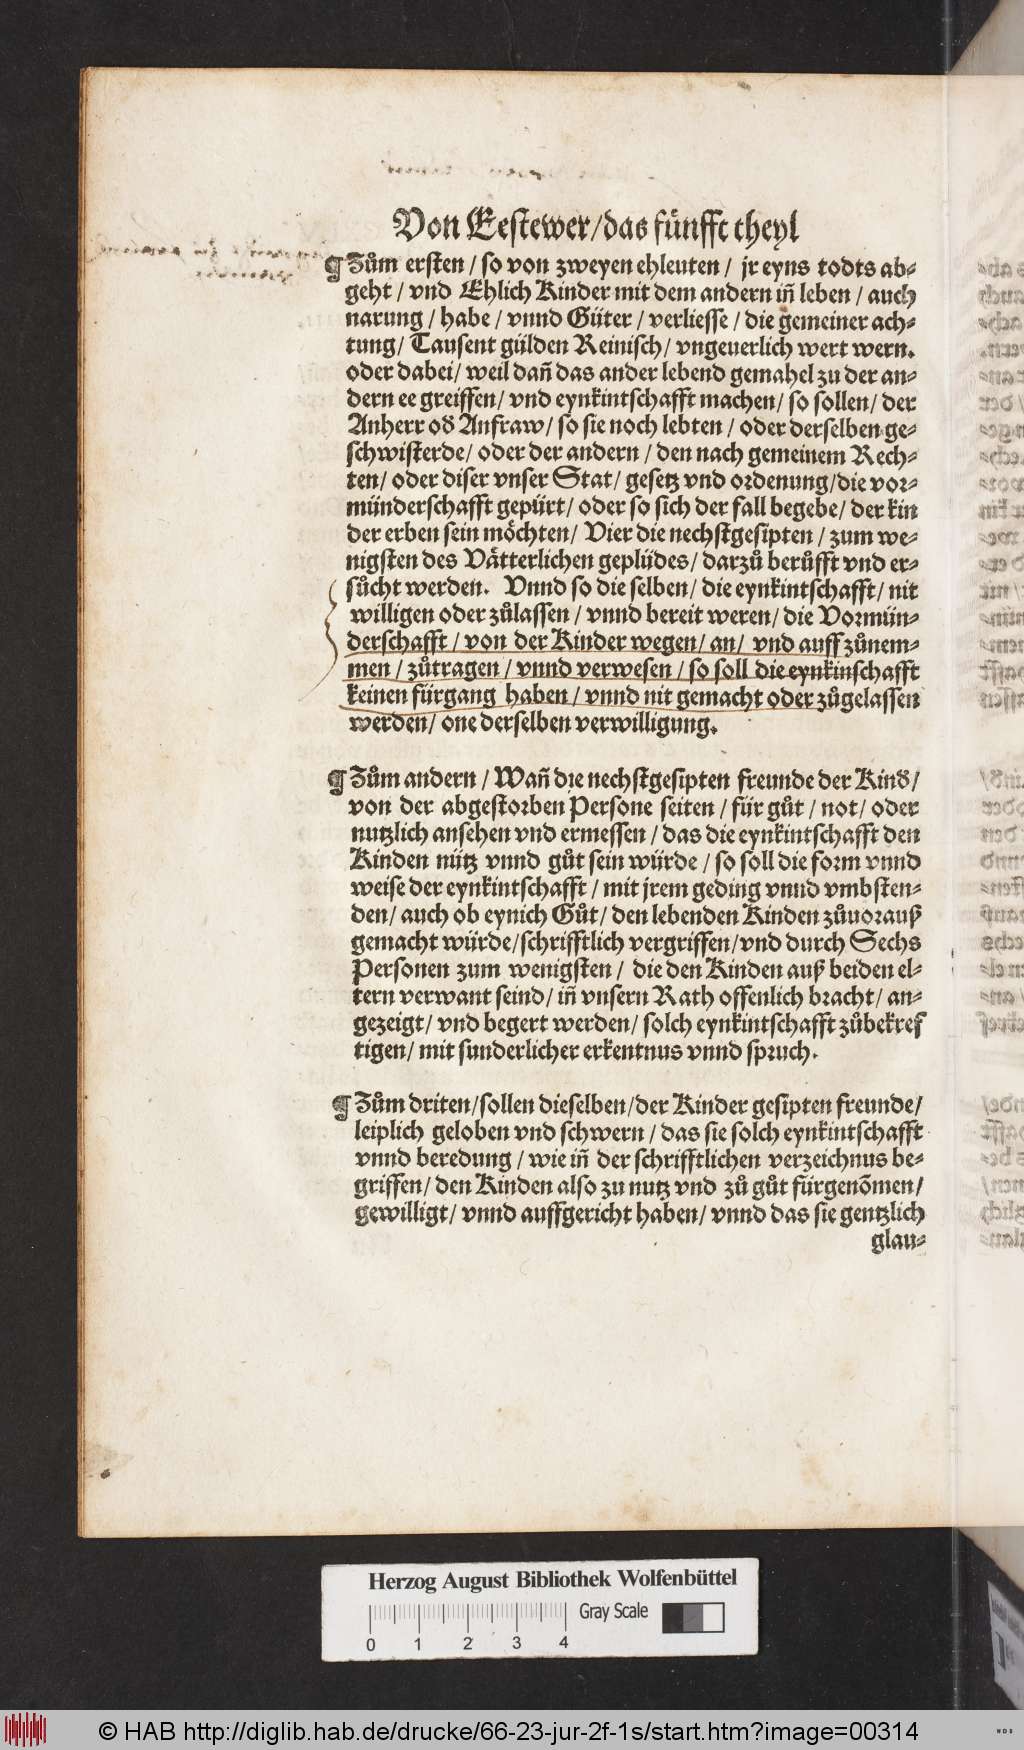 Von Eestewer/das fünfft theyl
¶ Zům ersten / so von zweyen ehleuten / jr eyns todts ab⸗
geht / vnd Ehlich Kinder mit dem andern iñ leben / auch
narung / habe / vnnd Güter / verliesse / die gemeiner ach⸗
tung/ Tausent gülden Reinisch/ vngeuerlich wert wern.
oder dabei/ weil dañ das ander lebend gemahel zu der an⸗
dern ee greiffen/ vnd eynkintschafft machen/ so sollen/ der
Anherr od̃ Anfraw/ so sie noch lebten / oder derselben ge⸗
schwisterde/ oder der andern / den nach gemeinem Rech⸗
ten/ oder diser vnser Stat/ gesetz vnd ordenung/die vor⸗
münderschafft gepürt/ oder so sich der fall begebe/ der kin
der erben sein möchten/ Vier die nechstgesipten / zum we⸗
nigsten des Vätterlichen geplüdes/ darzů berůfft vnd er⸗
sůcht werden. Vnnd so die selben/ die eynkintschafft/ nit
willigen oder zůlassen / vnnd bereit weren/ die Vormün⸗
derschafft / von der Kinder wegen/ an/ vnd auff zůnem⸗
men / zůtragen / vnnd verwesen / so soll die eynkinschafft
keinen fürgang haben / vnnd nit gemacht oder zůgelassen
werden/ one derselben verwilligung.
¶ Zům andern / Wañ die nechstgesipten freunde der Kind̃/
von der abgestorben Persone seiten / für gůt / not/ oder
nutzlich ansehen vnd ermessen / das die eynkintschafft den
Kinden nütz vnnd gůt sein würde / so soll die form vnnd
weise der eynkintschafft / mit jrem geding vnnd vmbsten⸗
den/ auch ob eynich Gůt/ den lebenden Kinden zůuorauß
gemacht würde/schrifftlich vergriffen/vnd durch Sechs
Personen zum wenigsten / die den Kinden auß beiden el⸗
tern verwant seind/ iñ vnsern Rath offenlich bracht/ an⸗
gezeigt/ vnd begert werden/ solch eynkintschafft zůbekref
tigen/ mit sunderlicher erkentnus vnnd spruch.
¶ Zům driten/sollen dieselben/der Kinder gesipten freunde/
leiplich geloben vnd schwern / das sie solch eynkintschafft
vnnd beredung / wie iñ der schrifftlichen verzeichnus be⸗
griffen/ den Kinden also zu nutz vnd zů gůt fürgenõmen/
gewilligt/ vnnd auffgericht haben/ vnnd das sie gentzlich
glau⸗
Herzog August Bibliothek Wolfenbüttel
Gray Scale
0 1 2 3 4
© HAB http://diglib.hab.de/drucke/66-23-jur-2f-1s/start.htm?image=00314